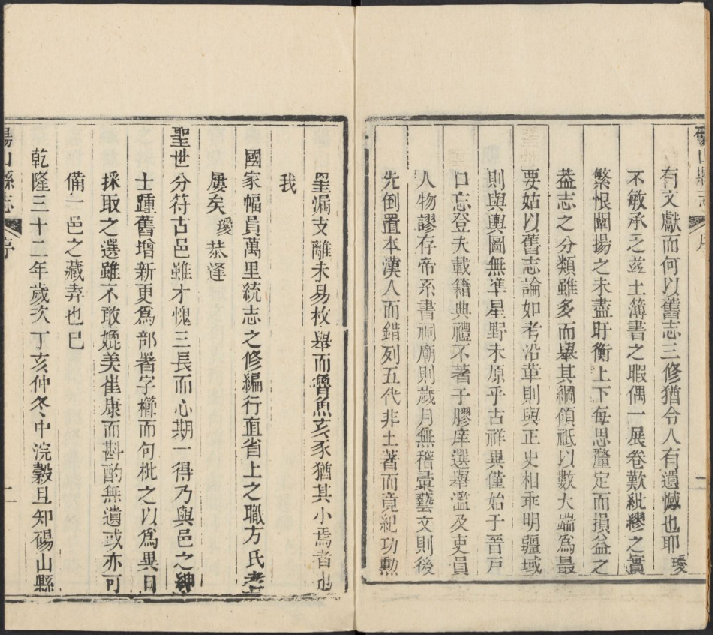 碭山縣志 序
有文獻而何以舊志三修猶令人有遺憾也耶瑗
不敏承乏茲土簿書之暇偶一展卷歎紕繆之實
繁恨闡揚之未盡盱衡上下每思釐定而損益之
葢志之分類雖多而舉其綱領祗以數大端為最
要姑以舊志論如考沿革則與正史相乖明疆域
則與輿圖無準星野未原乎古祥異僅始于晉戸
口忘登夫載籍典禮不著于膠庠選舉濫及吏員
人物謬存帝系書祠廟則歲月無稽彙藝文則後
先倒置本漢人而錯列五代非土著而竟紀功勲
罣漏支離未易枚舉而魯魚亥豕猶其小焉者也
我
國家幅員萬里統志之修編行直省上之職方氏者
屢矣瑗恭逢
聖世分符古邑雖才愧三長而心期一得乃與邑之紳
士踵舊增新更為部署字櫛而句枇之以為異日
採取之選雖不敢媲美崔康而斟酌無遺或亦可
備一邑之藏弆也已
乾隆三十二年歲次丁亥仲冬中浣穀旦知碭山縣
碭山縣志 序